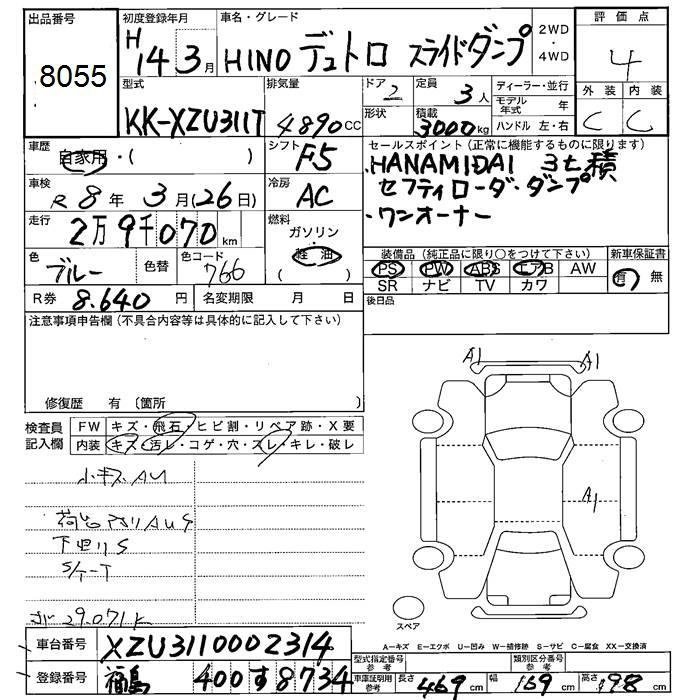 出品番号
8055
初度登録年月
H14 3月
車名・グレード
HINO デュトロ スライドダンプ
2WD・4WD
評価点
4
型式
KK-XZU311T
排気量
4890cc
ドア
2
形状
定員
3人
積載
3000kg
ディーラー・並行
モデル年式 年
ハンドル 左・右
外装 内装
C C
車歴
自家用・( )
シフト
F5
セールスポイント(正常に機能するものに限ります)
・HANAMIDAI 3t積
セフティローダーダンプ
・ワンオーナー
車検
R8年 3月(26日)
冷房
AC
走行
2万9千070km
燃料
ガソリン・軽油
( )
色
ブルー
色替
色コード
766
装備品(純正品に限り○をつけて下さい)
PS PW ABS エアB AW
SR ナビ TV カワ
新車保証書
有 無
R券 8.640円
名変期限 月 日
後日品
注意事項申告欄(不具合内容等は具体的に記入して下さい)
修復歴 有 (箇所
検査員記入欄
FW キズ・飛石・ヒビ割・リペア跡・X要
内装 キズ・汚レ・コゲ・穴・スレ・キレ・破レ
小キズAU
荷台 AUS
下回りS
S/T-T
29.071K
A1 A1
A1
スペア
A-キズ E-エクボ U-凹み W-補修跡 S-サビ C-腐食 XX-交換済
車台番号 XZU3110002314
登録番号 福島 400す8734
型式指定番号 参考
類別区分番号 参考
車庫証明用 参考
長さ 469cm 幅 169cm 高さ 198cm